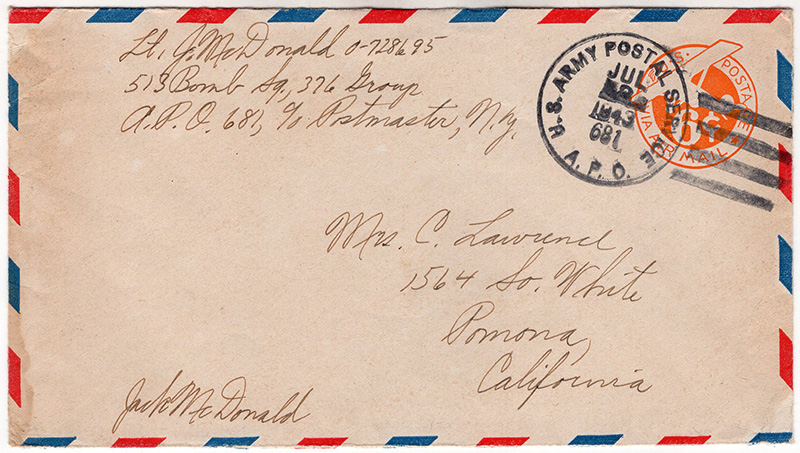 Lt. J. McDonald O-728695
513 Bomb Sq., 376 Group
A.P.O. 681, c/o Postmaster, N.Y.
U.S. ARMY POSTAL SERVICE
JUL
1943
681
A. P. O.
U.S. POSTAGE
6¢
VIA AIR MAIL
Mrs. C. Lawrence
1564 So. White
Pomona,
California
Jack McDonald